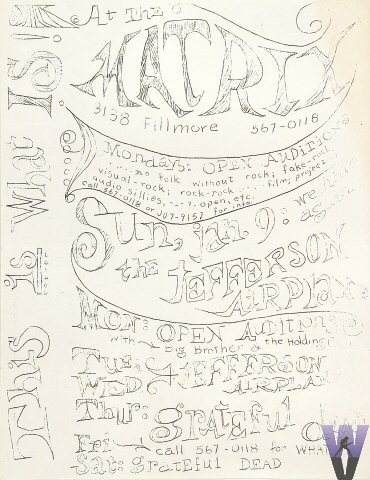 This is what IS!!
At the
MATRIX
3138 Fillmore 567-0118
Mondays: OPEN AUDITIONS
no talk without rock; fake-rock
visual-rock; rock-rock film; project
audio sillies, open, etc.
call 567-0118 or JU7-9157 for info
Sun, jan 9: we have
again
the JEFFERSON
AIRPLANE
Mon: OPEN AUDITIONS
with Big Brother & the Holding
Tues
WED JEFFERSON
AIRPLANE
Thur: grateful
Fri call 567-0118 for WHAT
Sat: grateful DEAD
W